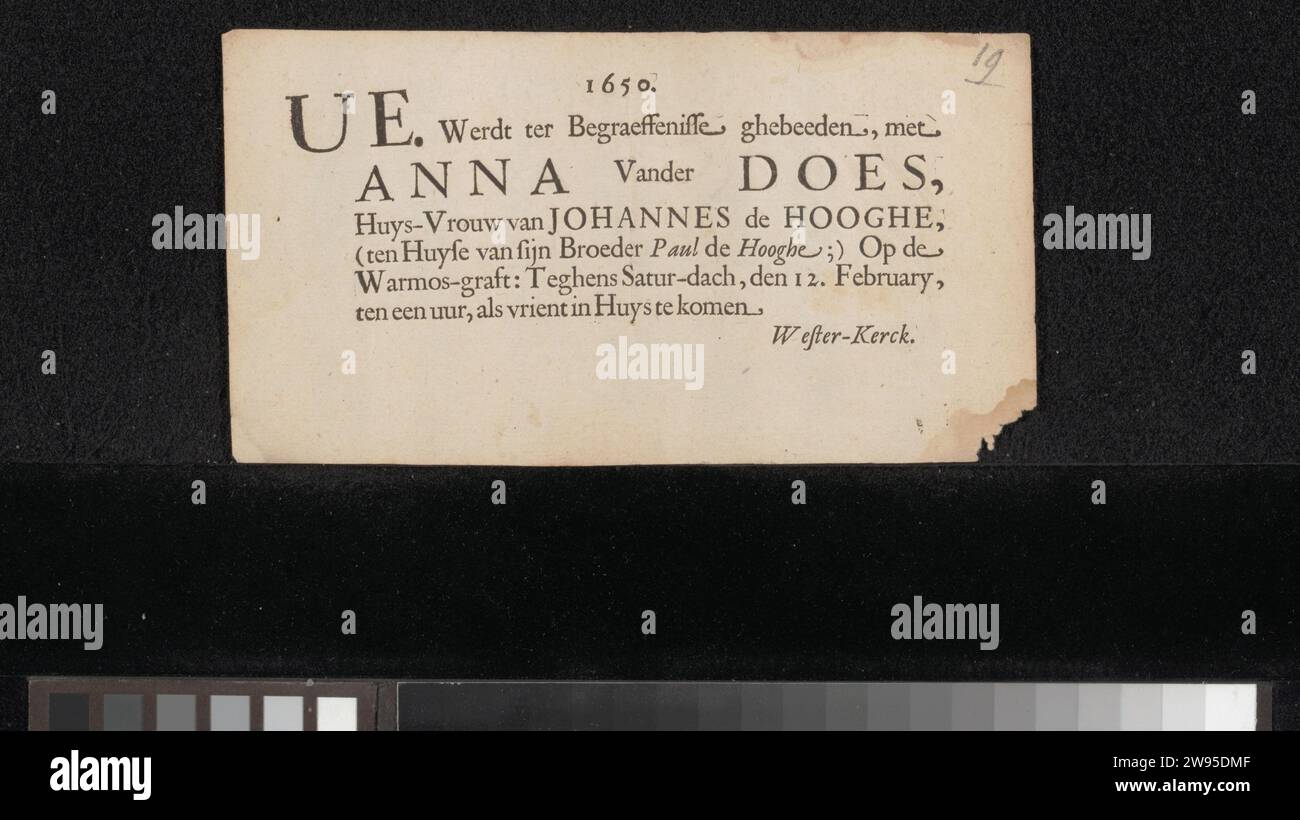 19
1650.
UE. Werdt ter Begraeffenisse ghebeeden, met
ANNA Vander DOES,
Huys-Vrouw van JOHANNES de HOOGHE,
(ten Huyſe van ſijn Broeder Paul de Hooghe;) Op de
Warmos-graft: Teghens Satur-dach, den 12. February,
ten een uur, als vrient in Huys te komen
Weſter-Kerck.
alamy
Image ID: 2W95DMF
www.alamy.com